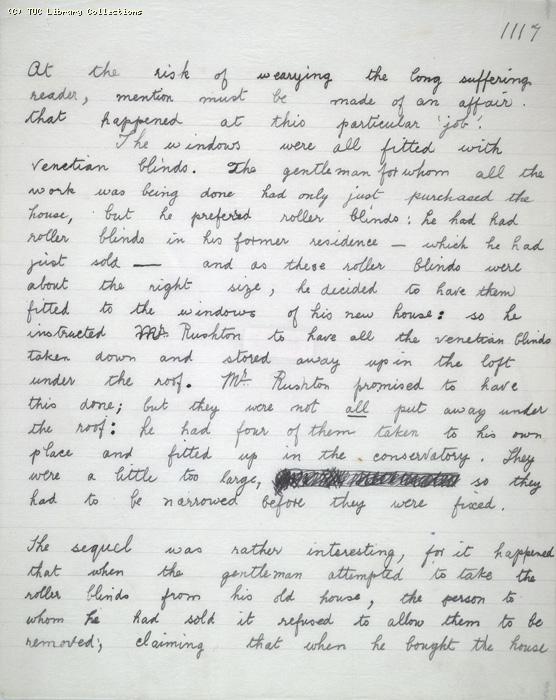 (C) TUC Library Collections
1117
At the risk of wearying the long suffering
reader, mention must be made of an affair
that happened at this particular 'job'.
The windows were all fitted with
venetian blinds. The gentleman for whom all the
work was being done had only just purchased the
house, but he preferred roller blinds: he had had
roller blinds in his former residence — which he had
just sold — and as these roller blinds were
about the right size, he decided to have them
fitted to the windows of his new house: so he
instructed Mr Rushton to have all the venetian blinds
taken down and stored away up in the loft
under the roof. Mr Rushton promised to have
this done; but they were not all put away under
the roof: he had four of them taken to his own
place and fitted up in the conservatory. They
were a little too large, so they
had to be narrowed before they were fixed.
The sequel was rather interesting, for it happened
that when the gentleman attempted to take the
roller blinds from his old house, the person to
whom he had sold it refused to allow them to be
removed; claiming that when he bought the house